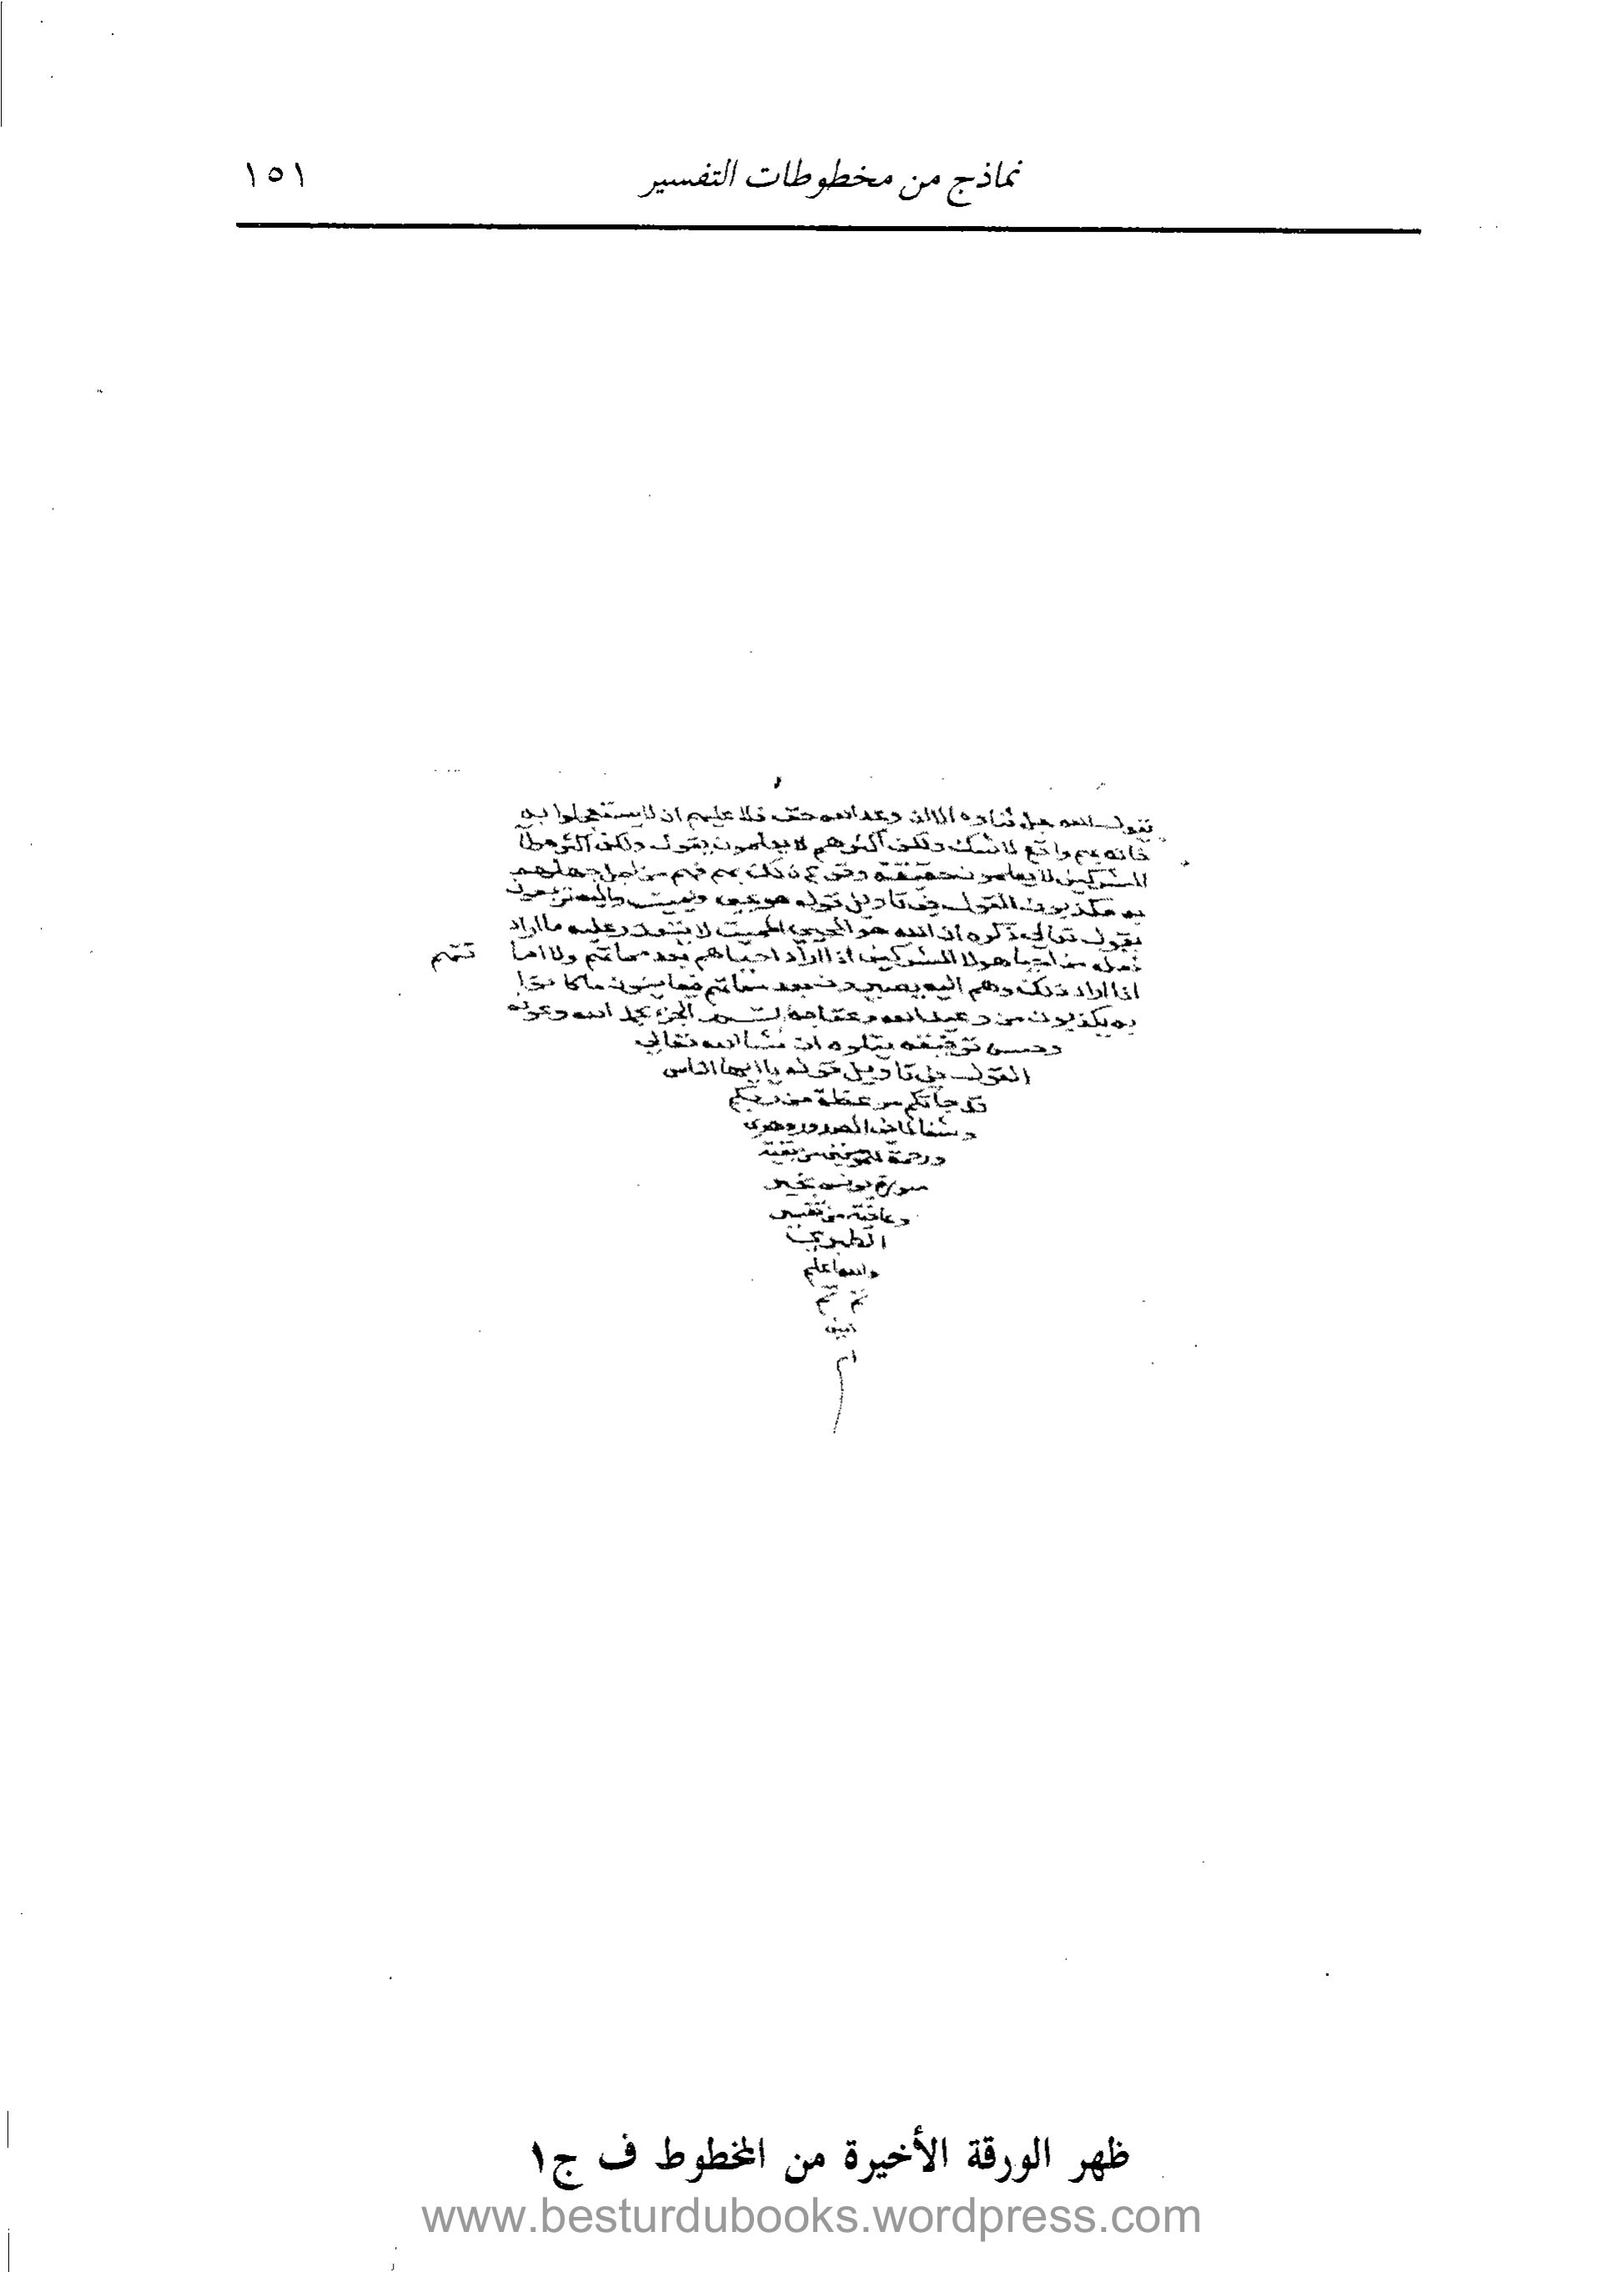 نماذج من مخطوطات التفسير ١٥١
يقول الله جل ثناوه الا ان وعد الله حق فلا عليهم ان لا يستعجلوا به
فانه بهم واقع لا شك ولكن اكثرهم لا يعلمون يقول ولكن اكثر هولا
المشركين لا يعلمون حقيقة وقوع ذلك بهم فهم من اجل جهلهم
به مكذبون القول في تاويل قوله هو يحي ويميت واليه ترجعون
يقول تعالى ذكره ان الله هو المحيي المميت لا يتعذر عليه ما اراد
فعله من احيا هولا المشركين اذا اراد احياهم بعد مماتهم ولا اماتتهم
اذا اراد ذلك وهم اليه يصيرون بعد مماتهم فيعاينون ما كانوا
به يكذبون من وعيد الله وعقابه الجزء بحمد الله وعونه
وحسن توفيقه يتلوه ان شا الله تعالى
القول في تاويل قوله يا ايها الناس
قد جاتكم موعظة من ربكم
وشفا لما في الصدور وهدى
ورحمة للمومنين من بقية
سورة يونس بخير
وعافية من تفسير
الطبري
والله اعلم
تم تم
امين
ظهر الورقة الأخيرة من المخطوط ف ج١
www.besturdubooks.wordpress.com